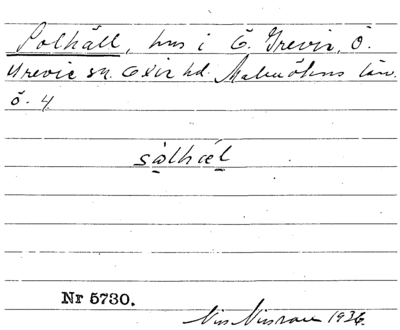 Solhäll, hus i Ö. Grevie, Ö.
Grevie sn. Oxie hd. Malmöhus län.
ö. 4
sòlhæl
Nr 5730.
1936.